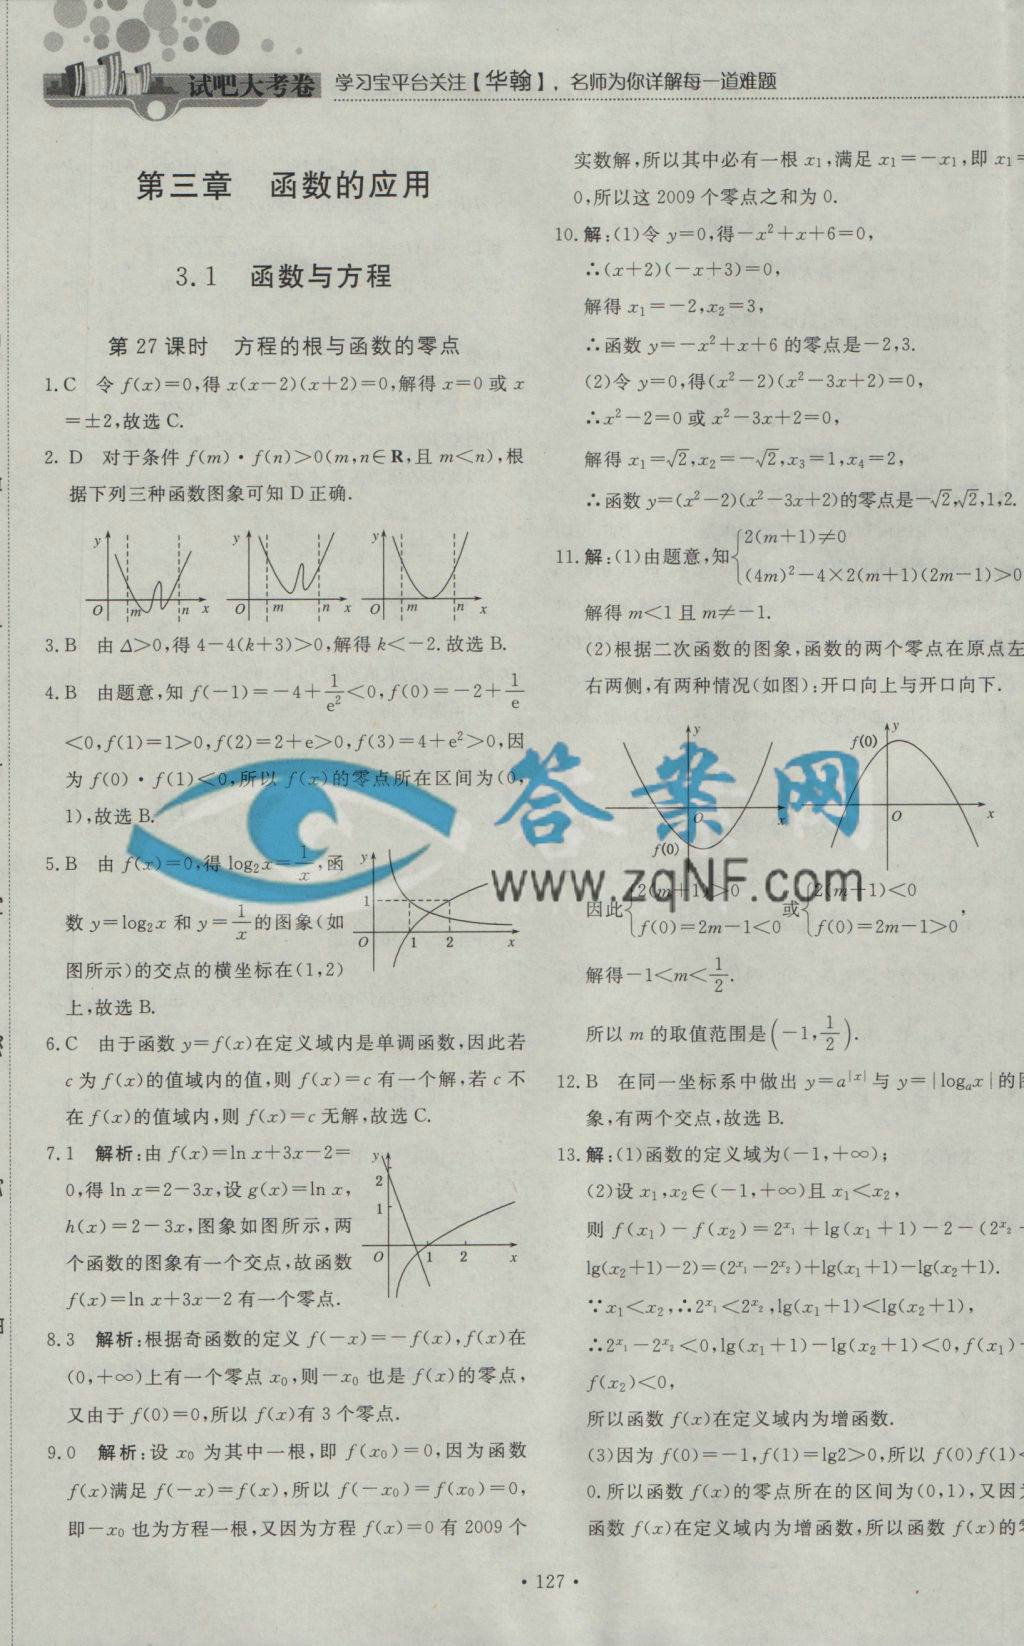 试吧大考卷 学习宝平台关注【华翰】，名师为你详解每一道难题
第三章 函数的应用
3.1 函数与方程
第27课时 方程的根与函数的零点
1.C 令f(x)=0,得x(x-2)(x+2)=0,解得x=0或x
=±2,故选C.
2. D 对于条件f(m)·f(n)>0(m,n∈R,且m<n),根
据下列三种函数图象可知D正确.
y y y
O m n x O m n x O m n x
3.B 由Δ>0,得4-4(k+3)>0,解得k<-2.故选B.
4.B 由题意,知f(-1)=-4+1/e²<0,f(0)=-2+1/e
<0,f(1)=1>0,f(2)=2+e>0,f(3)=4+e²>0,因
为f(0)·f(1)<0,所以f(x)的零点所在区间为(0,
1),故选B.
5.B 由f(x)=0,得log₂x=1/x,函
数y=log₂x和y=1/x的图象(如
图所示)的交点的横坐标在(1,2)
上,故选B.
y 1 O 1 2 x
6.C 由于函数y=f(x)在定义域内是单调函数,因此若
c为f(x)的值域内的值,则f(x)=c有一个解,若c不
在f(x)的值域内,则f(x)=c无解,故选C.
7.1 解析:由f(x)=ln x+3x-2=
0,得ln x=2-3x,设g(x)=ln x,
h(x)=2-3x,图象如图所示,两
个函数的图象有一个交点,故函数
f(x)=ln x+3x-2有一个零点.
y 2 1 O 1 2 x
8.3 解析:根据奇函数的定义f(-x)=-f(x),f(x)在
(0,+∞)上有一个零点x₀,则-x₀也是f(x)的零点,
又由于f(0)=0,所以f(x)有3个零点.
9.0 解析:设x₀为其中一根,即f(x₀)=0,因为函数
f(x)满足f(-x)=f(x),所以f(-x₀)=f(x₀)=0,
即-x₀也为方程一根,又因为方程f(x)=0有2009个
实数解,所以其中必有一根x₁,满足x₁=-x₁,即x₁=
0,所以这2009个零点之和为0.
10.解:(1)令y=0,得-x²+x+6=0,
∴(x+2)(-x+3)=0,
解得x₁=-2,x₂=3,
∴函数y=-x²+x+6的零点是-2,3.
(2)令y=0,得(x²-2)(x²-3x+2)=0,
∴x²-2=0或x²-3x+2=0,
解得x₁=√2,x₂=-√2,x₃=1,x₄=2,
∴函数y=(x²-2)(x²-3x+2)的零点是-√2,√2,1,2.
11.解:(1)由题意,知{2(m+1)≠0
(4m)²-4×2(m+1)(2m-1)>0
解得m<1且m≠-1.
(2)根据二次函数的图象,函数的两个零点在原点左
右两侧,有两种情况(如图):开口向上与开口向下.
y O x f(0) f(0) y O x
因此{2(m+1)>0 或{2(m+1)<0
f(0)=2m-1<0 f(0)=2m-1>0,
解得-1<m<1/2.
所以m的取值范围是(-1,1/2).
12.B 在同一坐标系中做出y=a^|x|与y=|logₐx|的图
象,有两个交点,故选B.
13.解:(1)函数的定义域为(-1,+∞);
(2)设x₁,x₂∈(-1,+∞)且x₁<x₂,
则f(x₁)-f(x₂)=2^x₁+lg(x₁+1)-2-(2^x₂+
lg(x₂+1)-2)=(2^x₁-2^x₂)+lg(x₁+1)-lg(x₂+1).
∵x₁<x₂,∴2^x₁<2^x₂,lg(x₁+1)<lg(x₂+1),
∴2^x₁-2^x₂<0,lg(x₁+1)-lg(x₂+1)<0,f(x₁)-
f(x₂)<0,
所以函数f(x)在定义域内为增函数.
(3)因为f(0)=-1,f(1)=lg2>0,所以f(0)f(1)<
0.所以函数f(x)的零点所在的区间为(0,1),又因为
函数f(x)在定义域内为增函数,所以函数f(x)的零
答案网
www.zqNF.com
·127·